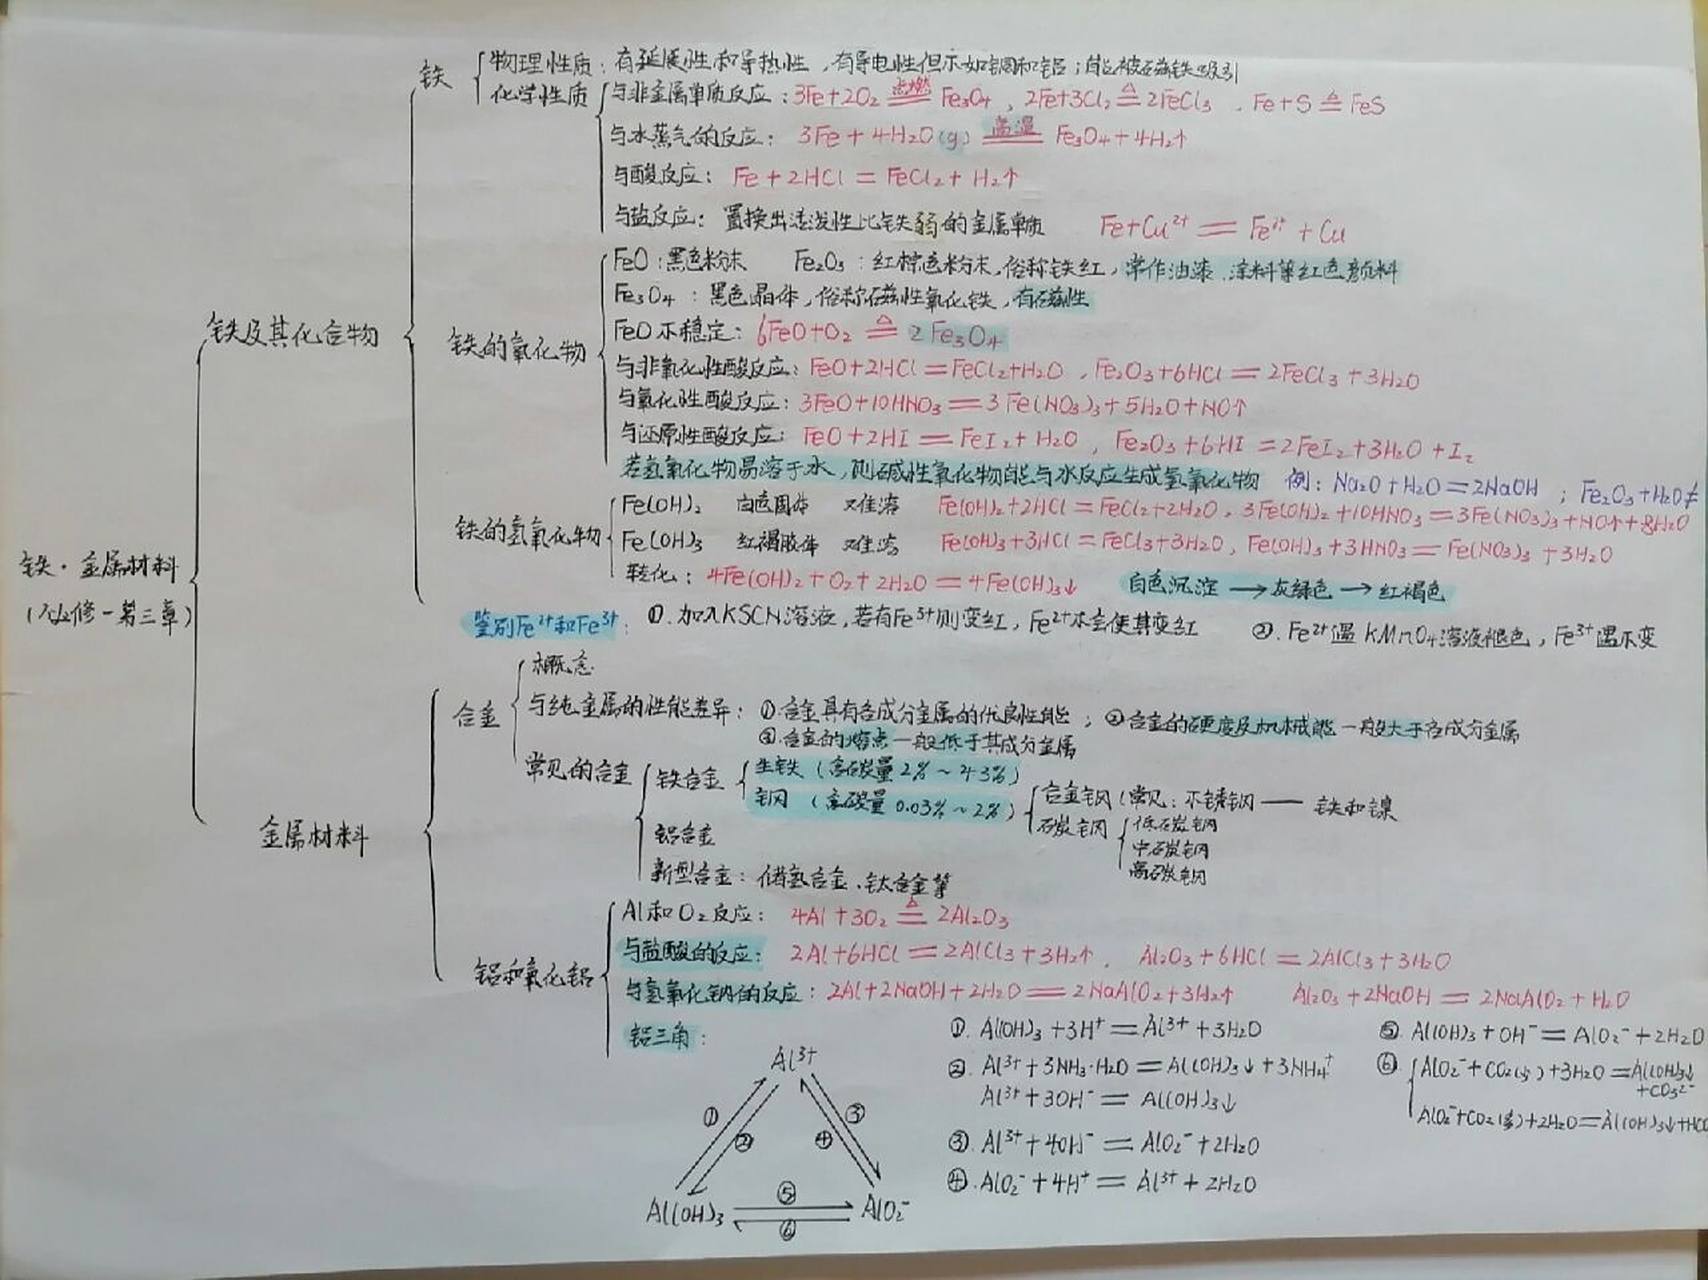 铁
物理性质：有延展性和导热性，有导电性但不如铜和铝；能被磁铁吸引
化学性质
与非金属单质反应：3Fe+2O₂ 点燃═ Fe₃O₄，2Fe+3Cl₂ △═ 2FeCl₃，Fe+S △═ FeS
与水蒸气的反应：3Fe+4H₂O(g) 高温═ Fe₃O₄+4H₂↑
与酸反应：Fe+2HCl═FeCl₂+H₂↑
与盐反应：置换出活泼性比铁弱的金属单质 Fe+Cu²⁺═Fe²⁺+Cu
铁及其化合物
铁的氧化物
FeO：黑色粉末 Fe₂O₃：红棕色粉末，俗称铁红，常作油漆、涂料等红色颜料
Fe₃O₄：黑色晶体，俗称磁性氧化铁，有磁性
FeO不稳定：6FeO+O₂ △═ 2Fe₃O₄
与非氧化性酸反应：FeO+2HCl═FeCl₂+H₂O，Fe₂O₃+6HCl═2FeCl₃+3H₂O
与氧化性酸反应：3FeO+10HNO₃═3Fe(NO₃)₃+5H₂O+NO↑
与还原性酸反应：FeO+2HI═FeI₂+H₂O，Fe₂O₃+6HI═2FeI₂+3H₂O+I₂
若氢氧化物易溶于水，则碱性氧化物能与水反应生成氢氧化物 例：Na₂O+H₂O═2NaOH；Fe₂O₃+H₂O≠
铁的氢氧化物
Fe(OH)₂ 白色固体 难溶 Fe(OH)₂+2HCl═FeCl₂+2H₂O，3Fe(OH)₂+10HNO₃═3Fe(NO₃)₃+NO↑+8H₂O
Fe(OH)₃ 红褐胶体 难溶 Fe(OH)₃+3HCl═FeCl₃+3H₂O，Fe(OH)₃+3HNO₃═Fe(NO₃)₃+3H₂O
转化：4Fe(OH)₂+O₂+2H₂O═4Fe(OH)₃↓ 白色沉淀→灰绿色→红褐色
鉴别Fe²⁺和Fe³⁺：①.加入KSCN溶液，若有Fe³⁺则变红，Fe²⁺不会使其变红 ②.Fe²⁺遇KMnO₄溶液褪色，Fe³⁺遇不变
铁·金属材料
(必修一第三章)
金属材料
合金
概念
与纯金属的性能差异：①.合金具有各成分金属的优良性能；②合金的硬度及机械能一般大于各成分金属
③.合金的熔点一般低于其成分金属
常见的合金
铁合金
生铁（含碳量2%～4.3%）
钢（含碳量0.03%～2%）
合金钢（常见：不锈钢——铁和镍
碳素钢
低碳素钢
中碳素钢
高碳素钢
铝合金
新型合金：储氢合金、钛合金等
铝和氧化铝
Al和O₂反应：4Al+3O₂ △═ 2Al₂O₃
与盐酸的反应：2Al+6HCl═2AlCl₃+3H₂↑，Al₂O₃+6HCl═2AlCl₃+3H₂O
与氢氧化钠的反应：2Al+2NaOH+2H₂O═2NaAlO₂+3H₂↑ Al₂O₃+2NaOH═2NaAlO₂+H₂O
铝三角：
Al³⁺
① ② ③ ④
Al(OH)₃ ⑤ ⑥ AlO₂⁻
①.Al(OH)₃+3H⁺═Al³⁺+3H₂O
②.Al³⁺+3NH₃·H₂O═Al(OH)₃↓+3NH₄⁺
Al³⁺+3OH⁻═Al(OH)₃↓
③.Al³⁺+4OH⁻═AlO₂⁻+2H₂O
④.AlO₂⁻+4H⁺═Al³⁺+2H₂O
⑤.Al(OH)₃+OH⁻═AlO₂⁻+2H₂O
⑥.AlO₂⁻+CO₂(少)+3H₂O═Al(OH)₃↓
+CO₃²⁻
AlO₂⁻+CO₂(多)+2H₂O═Al(OH)₃↓+HCO